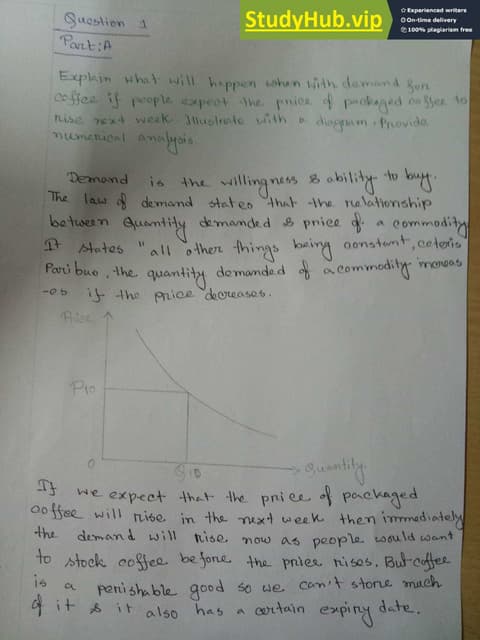 StudyHub.vip
Experienced writers
On-time delivery
100% plagiarism free
Question 1
Part:A
Explain what will happen when with demand for
coffee if people expect the price of packaged coffee to
rise next week. Illustrate with a diagram. Provide
numerical analysis.
Demand is the willingness & ability to buy.
The law of demand states that the relationship
between Quantity demanded & price of a commodity.
It states "all other things being constant, ceteris
Paribus, the quantity demanded of a commodity increas
-es if the price decreases.
Price
P10
0
Q10
Quantity
If we expect that the price of packaged
coffee will rise in the next week then immediately
the demand will rise now as people would want
to stock coffee before the price rises. But coffee
is a perishable good so we can't store much
of it & it also has a certain expiry date.